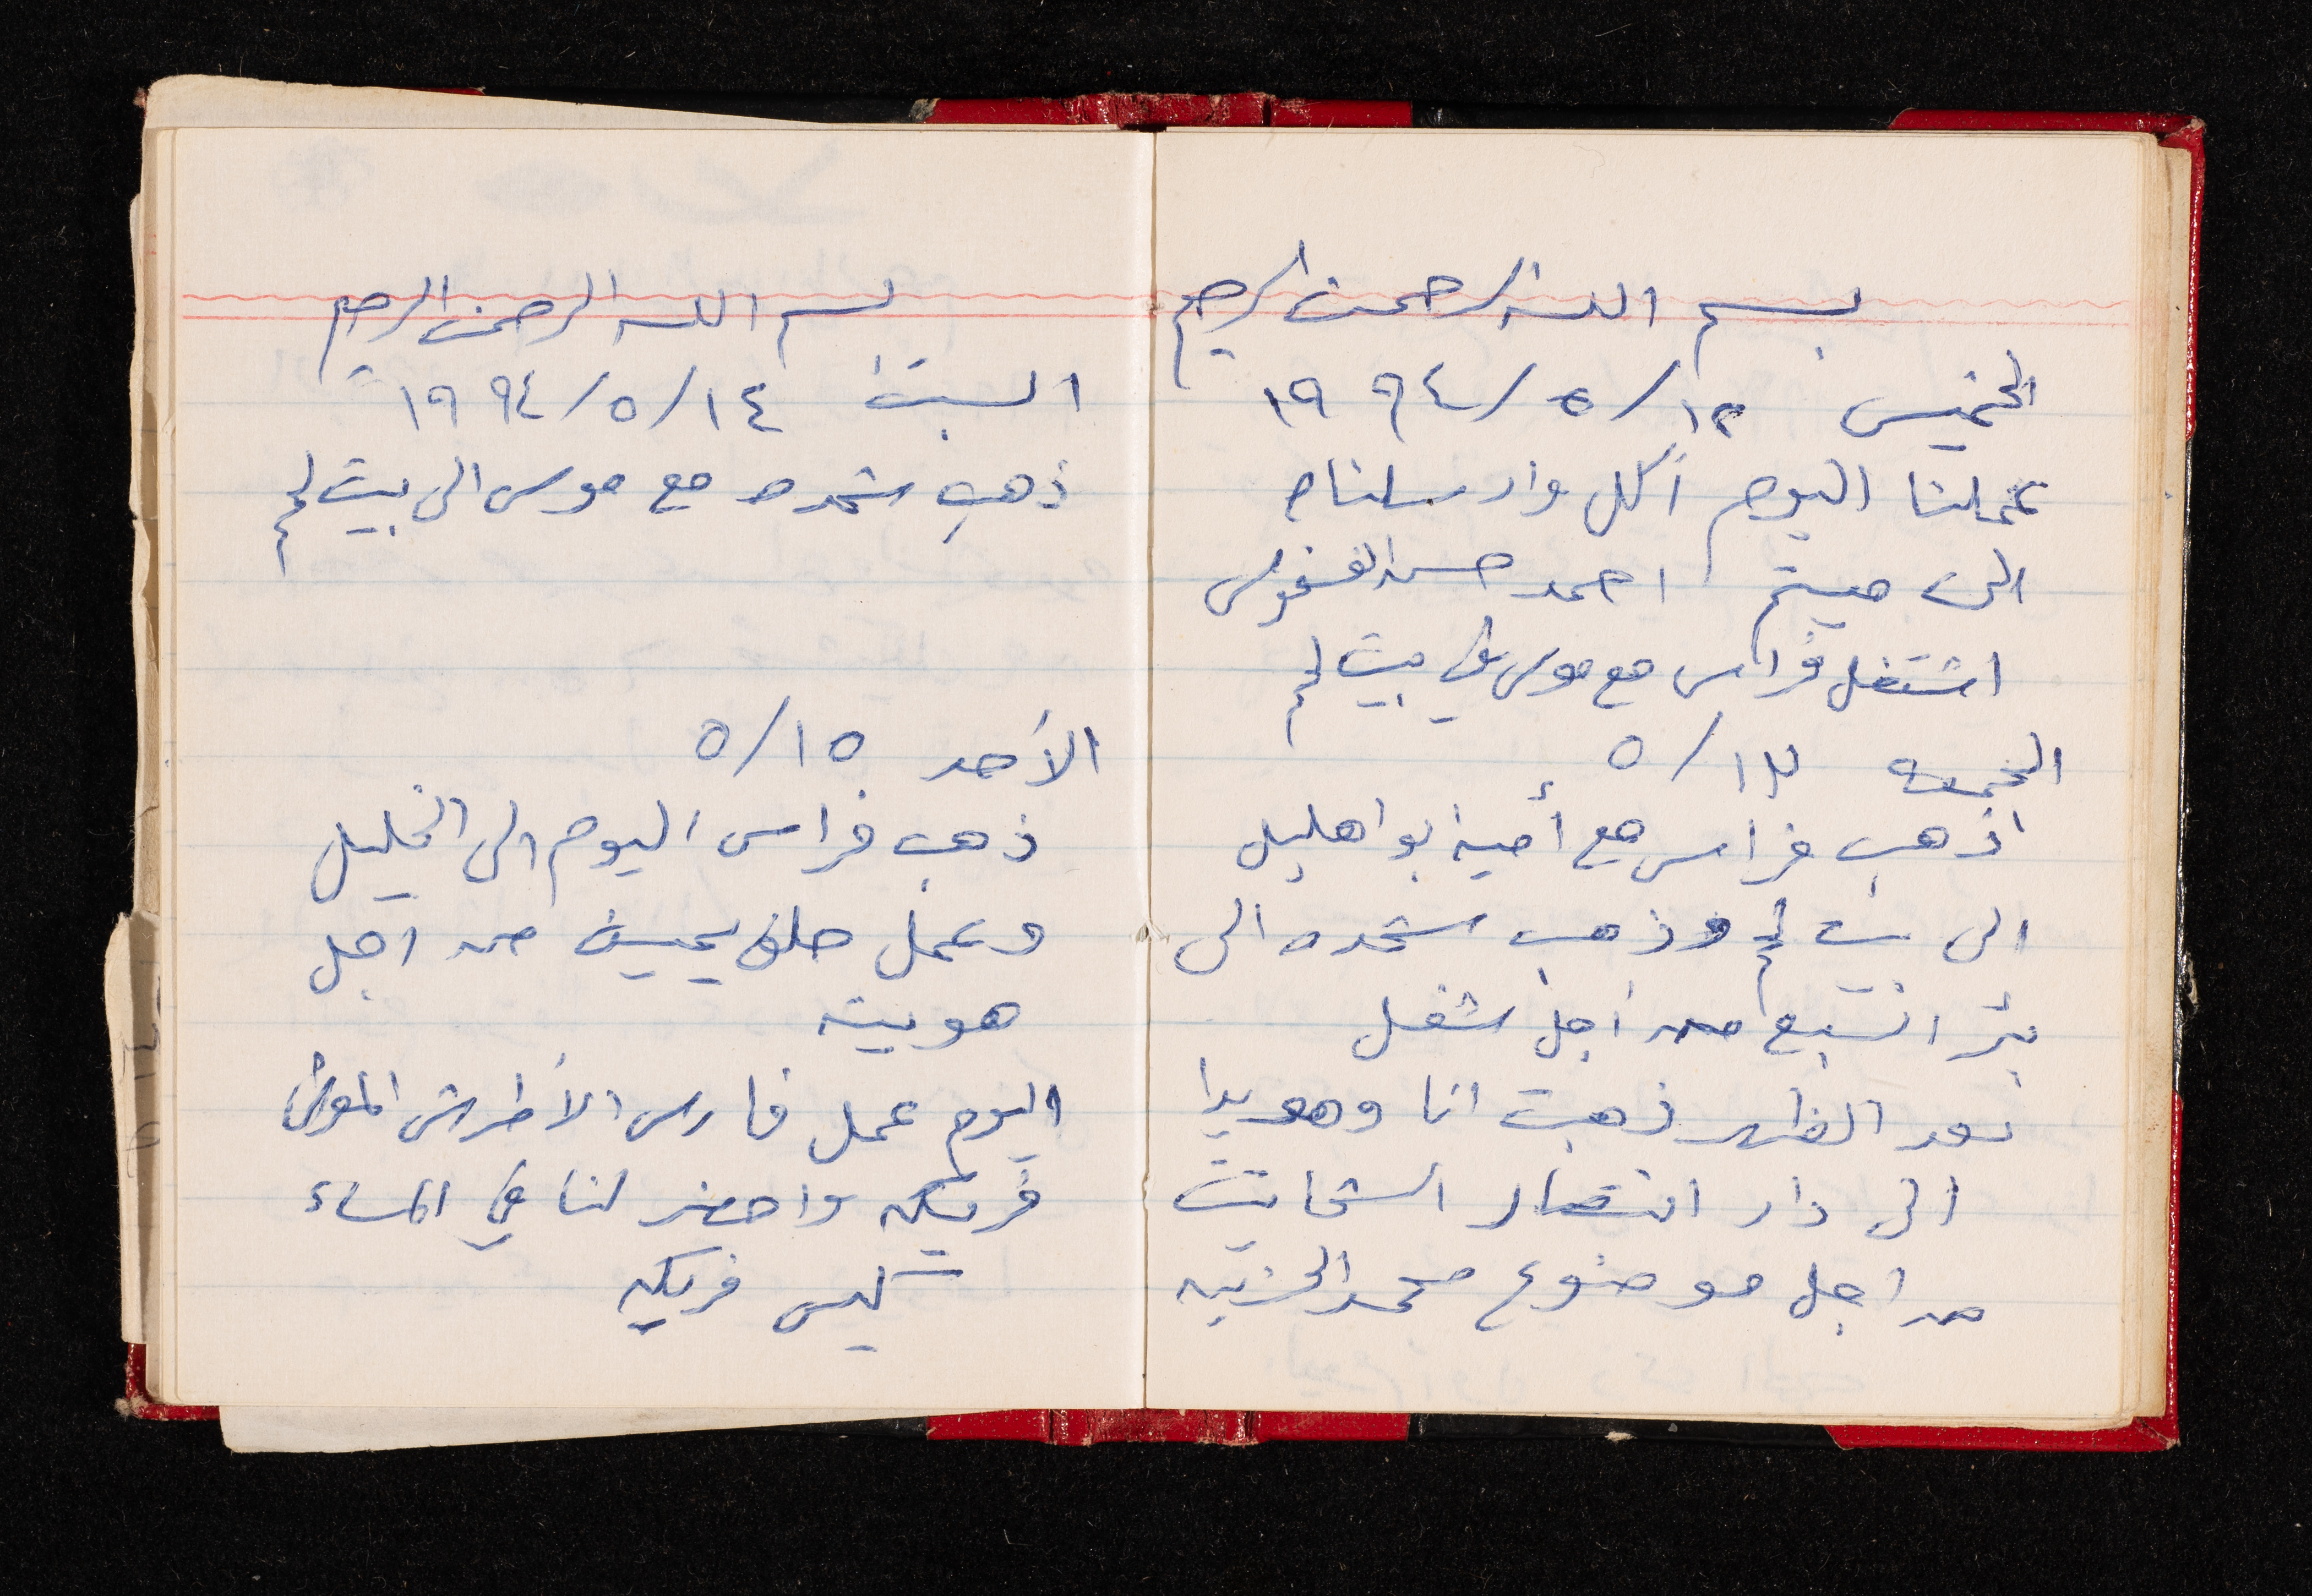 بسم الله الرحمن الرحيم
الخميس ١٢/٥/١٩٩٤
عملنا اليوم أكل وارسلناه
الى ميتم احمد حسن
اشتغل فراس مع موسى في بيت لحم
الجمعه ١٣/٥
اذهب فراس مع أمين ابو اهليل
الى بيت لحم وذهب شحده الى
بئر السبع من اجل شغل
بعد الظهر ذهبت انا وهويدا
الى دار انتصار الشحاتيت
من اجل موضوع محمد
بسم الله الرحمن الرحيم
السبت ١٤/٥/١٩٩٤
ذهب شحده مع موسى الى بيت لحم
الأحد ١٥/٥
ذهب فراس اليوم الى الخليل
وعمل حلف يمين من اجل
هويته
اليوم عمل فارس الأطرش
فريكه واحضر لنا في المساء
كيس فريكه